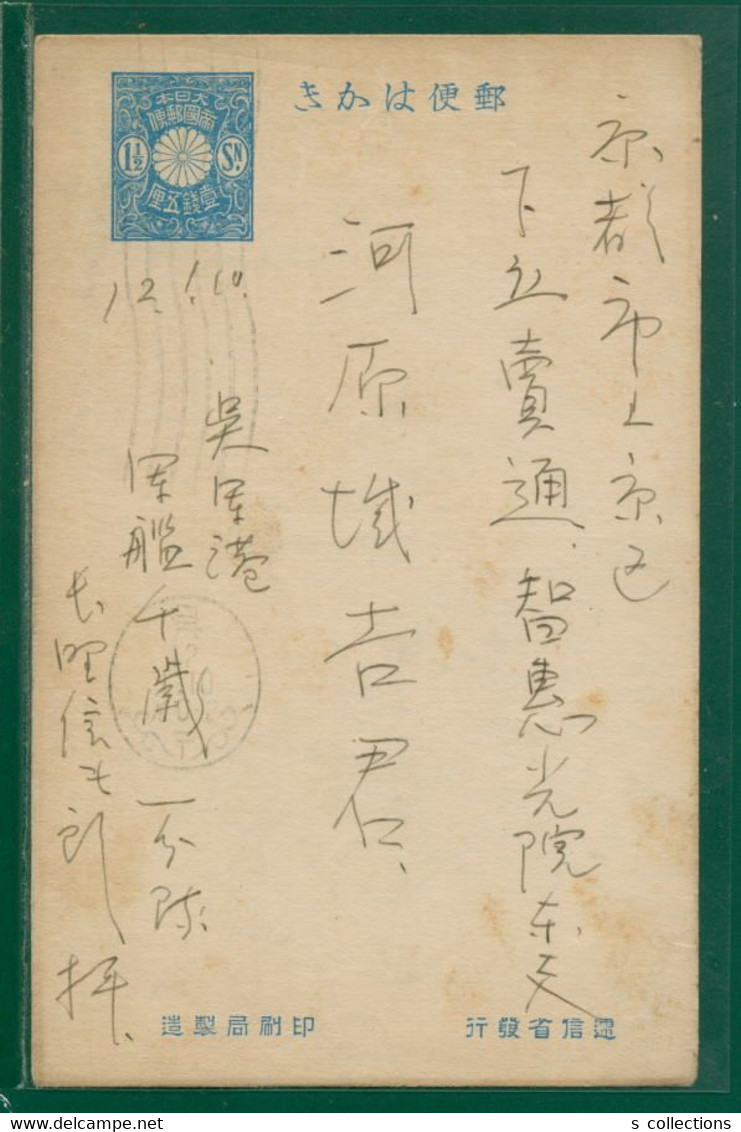 郵便はかき
大日本
帝國郵便
1½ SN.
壹錢五厘
京都市上京区
下立賣通智恵光院東入
河原 吉君
12.1.10.
呉軍港
軍艦千歳一分隊
長野信 郎拝
逓信省發行
印刷局製造
s collections